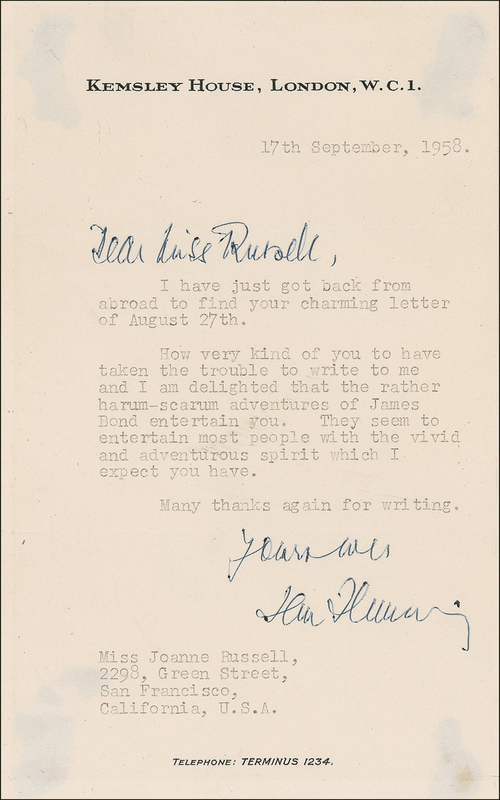 KEMSLEY HOUSE, LONDON, W.C.1.
17th September, 1958.
Dear Miss Russell,
I have just got back from
abroad to find your charming letter
of August 27th.
How very kind of you to have
taken the trouble to write to me
and I am delighted that the rather
harum-scarum adventures of James
Bond entertain you. They seem to
entertain most people with the vivid
and adventurous spirit which I
expect you have.
Many thanks again for writing.
Yours ever
Ian Fleming
Miss Joanne Russell,
2298, Green Street,
San Francisco,
California, U.S.A.
TELEPHONE: TERMINUS 1234.